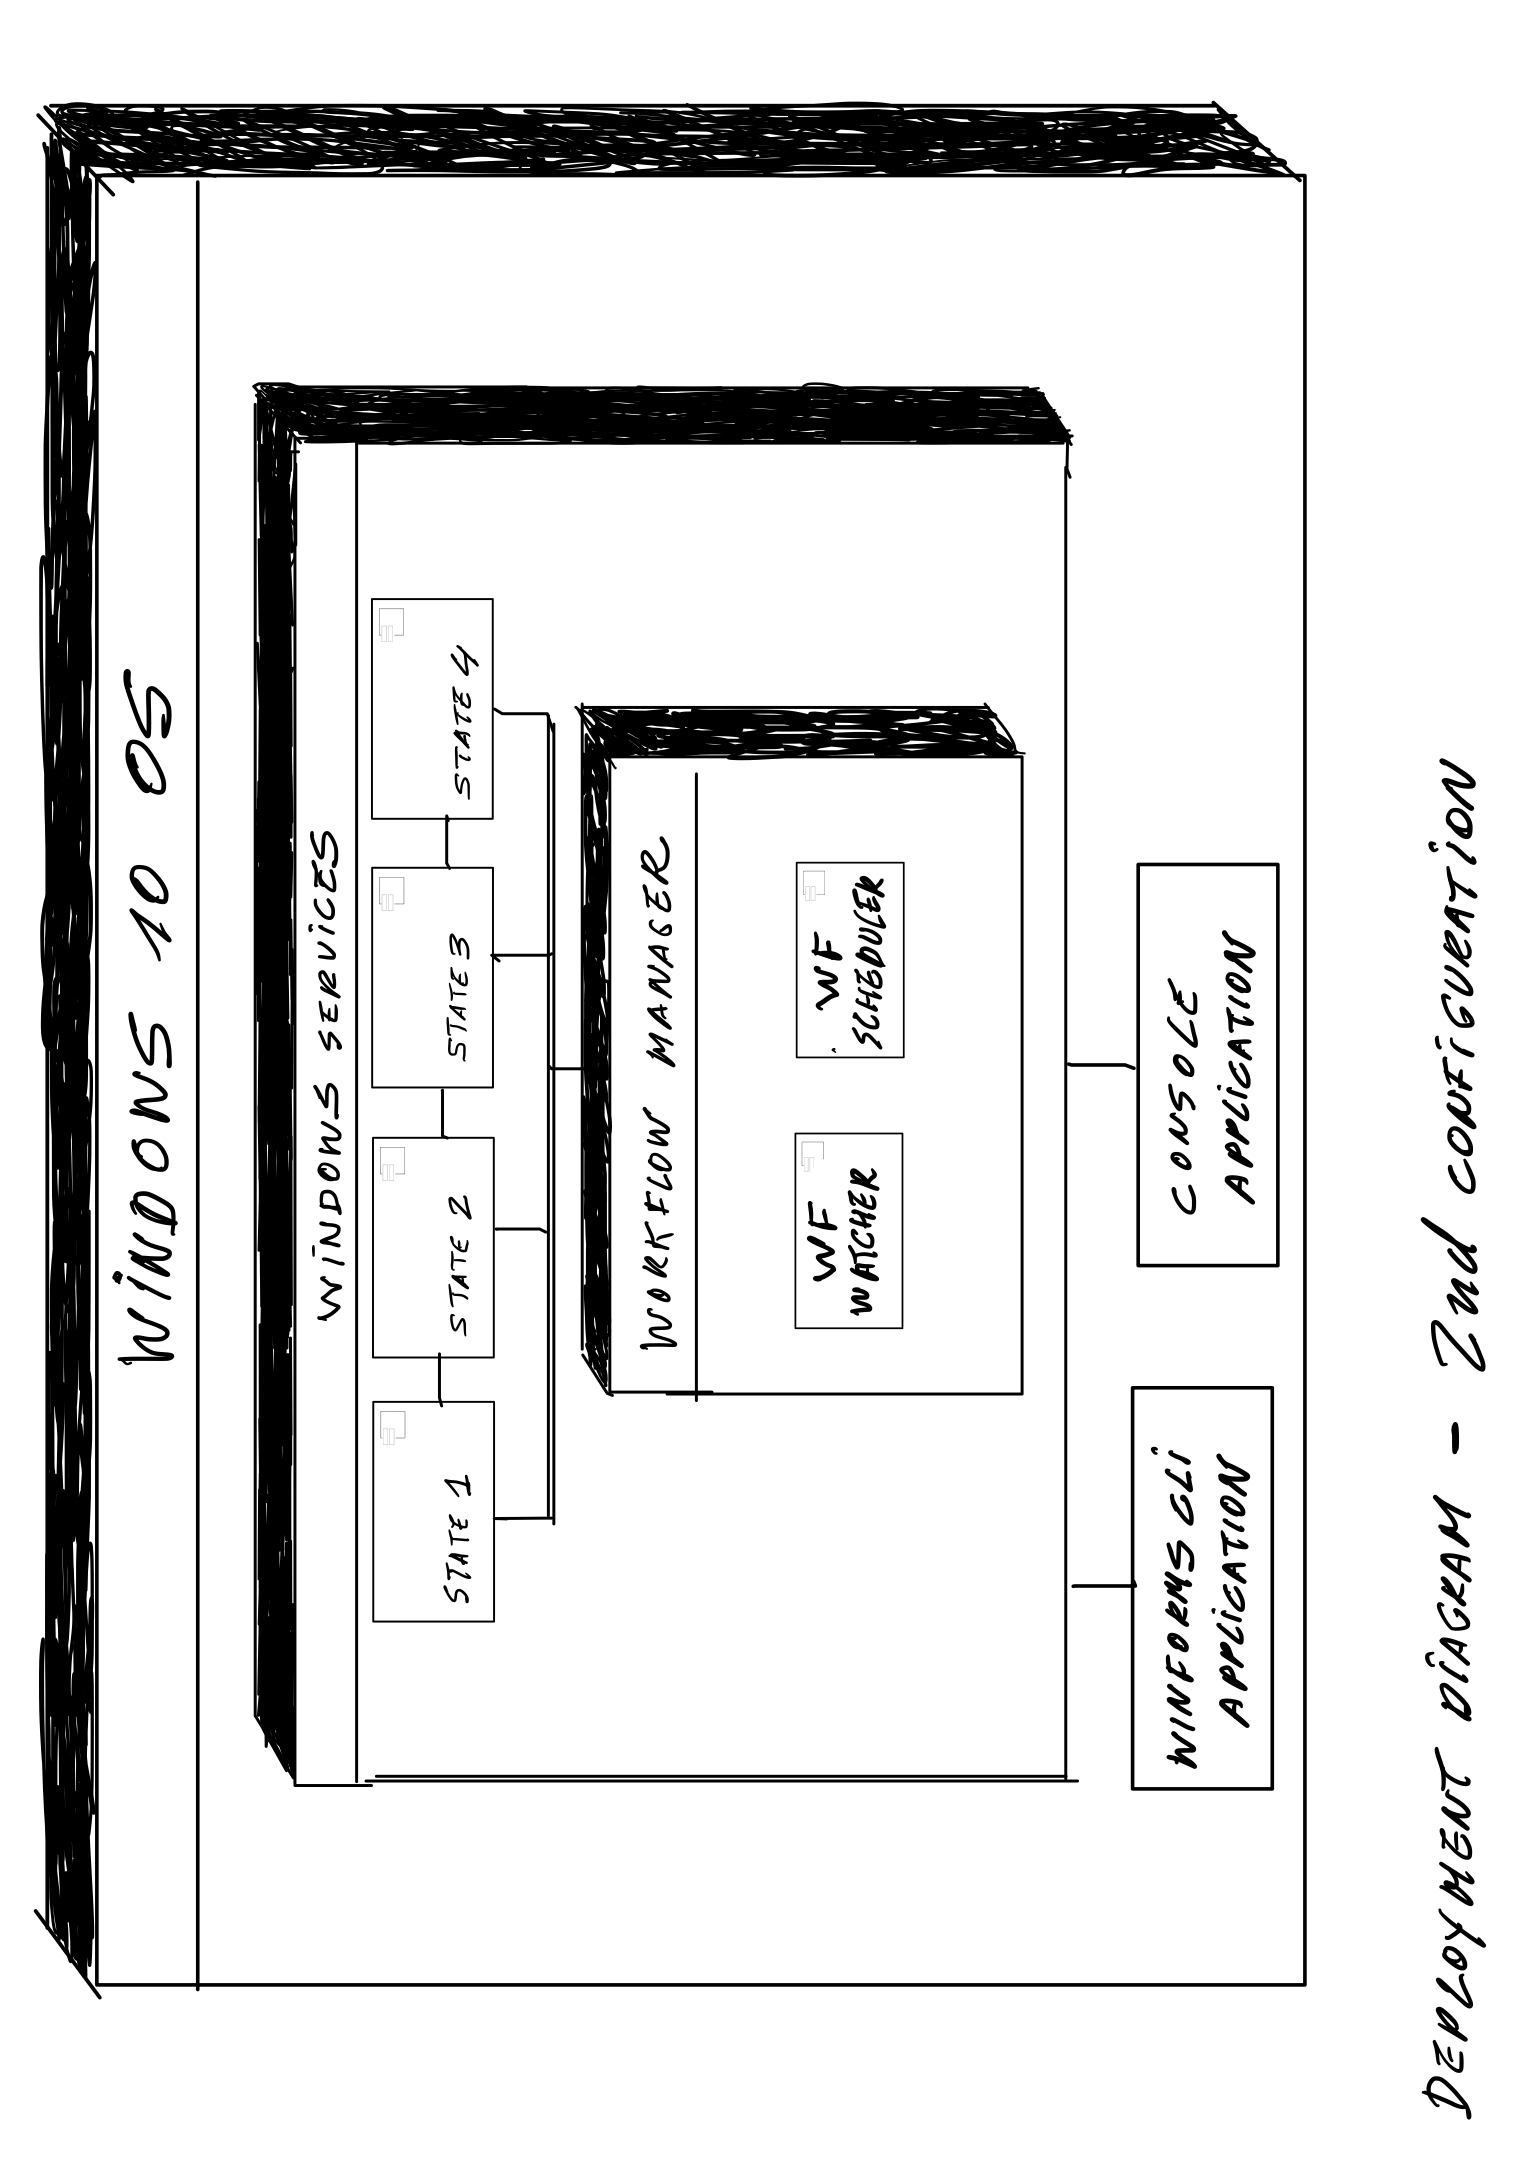 WINDOWS 10 OS
WINDOWS SERVICES
STATE 1
STATE 2
STATE 3
STATE 4
WORKFLOW MANAGER
WF
WATCHER
WF
SCHEDULER
WINFORMS CLI
APPLICATION
CONSOLE
APPLICATION
DEPLOYMENT DIAGRAM - 2nd CONFIGURATION